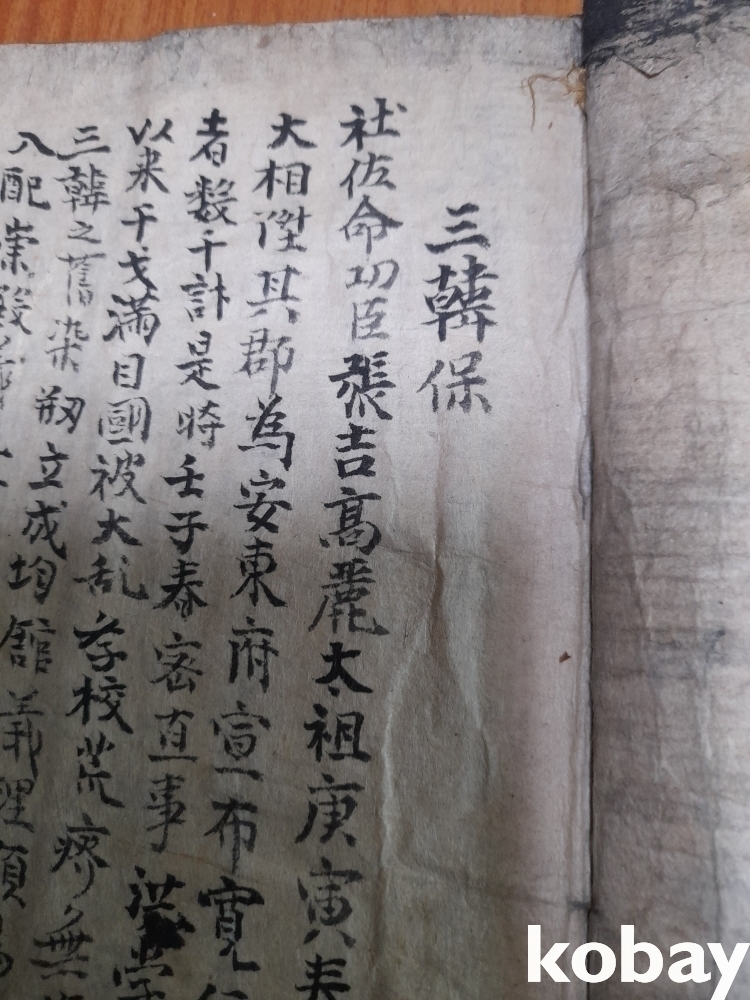 三韓保
社佐命功臣張吉高麗太祖庚寅春
大相陞其郡為安東府宣布寬仁
者數千計是時壬子春密直事洪
以来干戈滿目國被大乱学校荒廢無
三韓之舊染剏立成均館義理
入配崇殿
kobay